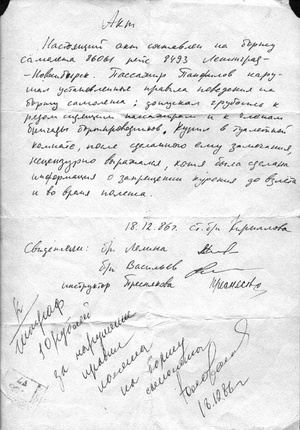 Акт
Настоящий акт составлен на борту
самолета 86061 рейс 8493 Ленинград-
Новосибирск. Пассажир Панфилов нару-
шал установленные правила поведения на
борту самолета: допускал грубости к
рядом сидящим пассажирам и к членам
бригады бортпроводников, курил в туалетной
комнате, после сделанного ему замечания,
нецензурно выражался, хотя была сделана
информация о запрещении курения до взлета
и во время полета.
18.12.86г. Ст. бр. Кириллова
Свидетели: бр. Лелина
бр. Васильев
инструктор
К
штраф
10 рублей
за нарушение
правил
полета
на борту
самолета
18.12.86г